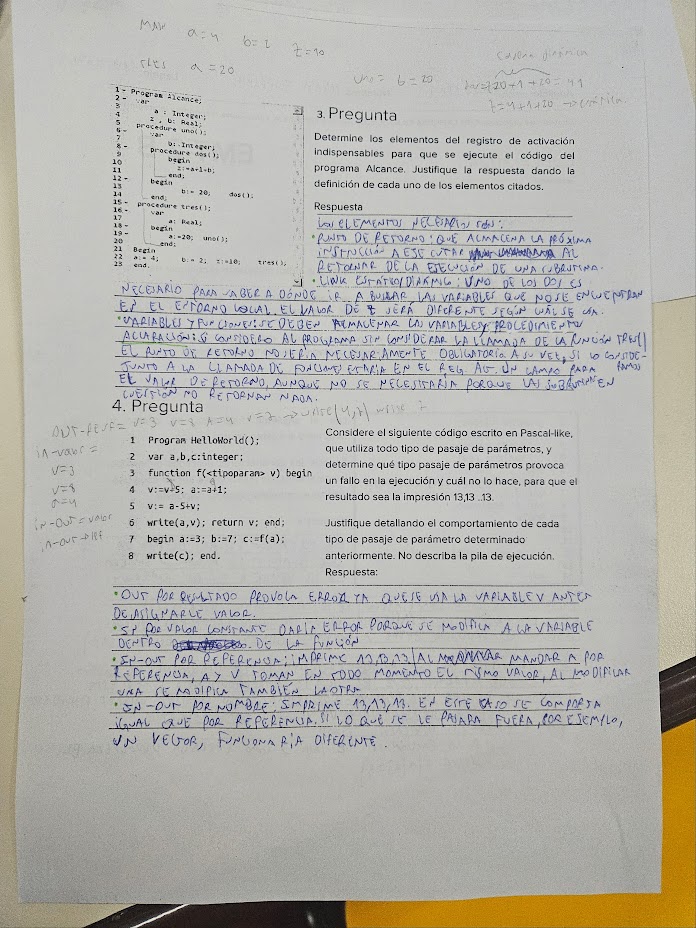 MAIN a=4 b=2 z=10
TRES a=20
uno= b=20
1- Program Alcance;
2- var
3
4 a : Integer;
5 z , b: Real;
6- procedure uno();
7 var
b: Integer;
8- procedure dos();
9
10 begin
11 z:=a+1+b;
end;
12- begin
13
14 b:= 20; dos();
end;
15- procedure tres();
16- var
17 a: Real;
18- begin
19 a:=20; uno();
20 end;
21 Begin
22 a:= 4; b:= 2; z:=10; tres();
23 end.
3. Pregunta
Determine los elementos del registro de activación
indispensables para que se ejecute el código del
programa Alcance. Justifique la respuesta dando la
definición de cada uno de los elementos citados.
Respuesta
LOS ELEMENTOS NECESARIOS SON:
• PUNTO DE RETORNO: QUE ALMACENA LA PRÓXIMA
INSTRUCCIÓN A EJECUTAR AL
RETORNAR DE LA EJECUCIÓN DE UNA SUBRUTINA.
• LINK ESTATICO/DINÁMICO: UNO DE LOS DOS ES
NECESARIO PARA SABER A DÓNDE IR A BUSCAR LAS VARIABLES QUE NO SE ENCUENTRAN
EN EL ENTORNO LOCAL. EL VALOR DE Z SERÁ DIFERENTE SEGÚN CUÁL SE USA.
• VARIABLES Y FUNCIONES: SE DEBEN ALMACENAR LAS VARIABLES Y PROCEDIMIENTO
ACLARACIÓN: SI CONSIDERO AL PROGRAMA SIN CONSIDERAR LA LLAMADA DE LA FUNCIÓN TRES()
EL PUNTO DE RETORNO NO SERÍA NECESARIAMENTE OBLIGATORIO. A SU VEZ, SI LO CONSIDE-
RAMOS
JUNTO A LA LLAMADA DE FUNCIÓN ESTARÍA EN EL REG ACT. UN CAMPO PARA
EL VALOR DE RETORNO, AUNQUE NO SE NECESITARÍA PORQUE LAS SUBRUTINAS EN
CUESTIÓN NO RETORNAN NADA.
4. Pregunta
IN-valor=
v=3
v=8
a=4
IN-OUT=valor
1 Program HelloWorld();
2 var a,b,c:integer;
3 function f(<tipoparam> v) begin
4 v:=v+5; a:=a+1;
5 v:= a-5+v;
6 write(a,v); return v; end;
7 begin a:=3; b:=7; c:=f(a);
8 write(c); end.
Considere el siguiente código escrito en Pascal-like,
que utiliza todo tipo de pasaje de parámetros, y
determine qué tipo pasaje de parámetros provoca
un fallo en la ejecución y cuál no lo hace, para que el
resultado sea la impresión 13,13 ..13.
Justifique detallando el comportamiento de cada
tipo de pasaje de parámetro determinado
anteriormente. No describa la pila de ejecución.
Respuesta:
• OUT POR RESULTADO PROVOCA ERROR YA QUE SE USA LA VARIABLE V ANTES
DE ASIGNARLE VALOR.
• IN POR VALOR CONSTANTE DARÍA ERROR PORQUE SE MODIFICA A LA VARIABLE
DENTRO DE LA FUNCIÓN
• IN-OUT POR REFERENCIA: IMPRIME 13,13,13. AL MANDAR A POR
REFERENCIA, A Y V TOMAN EN TODO MOMENTO EL MISMO VALOR, AL MODIFICAR
UNA SE MODIFICA TAMBIÉN LA OTRA.
• IN-OUT POR NOMBRE: IMPRIME 13,13,13. EN ESTE CASO SE COMPORTA
IGUAL QUE POR REFERENCIA. SI LO QUE SE LE PASARA FUERA, POR EJEMPLO,
UN VECTOR, FUNCIONARÍA DIFERENTE.